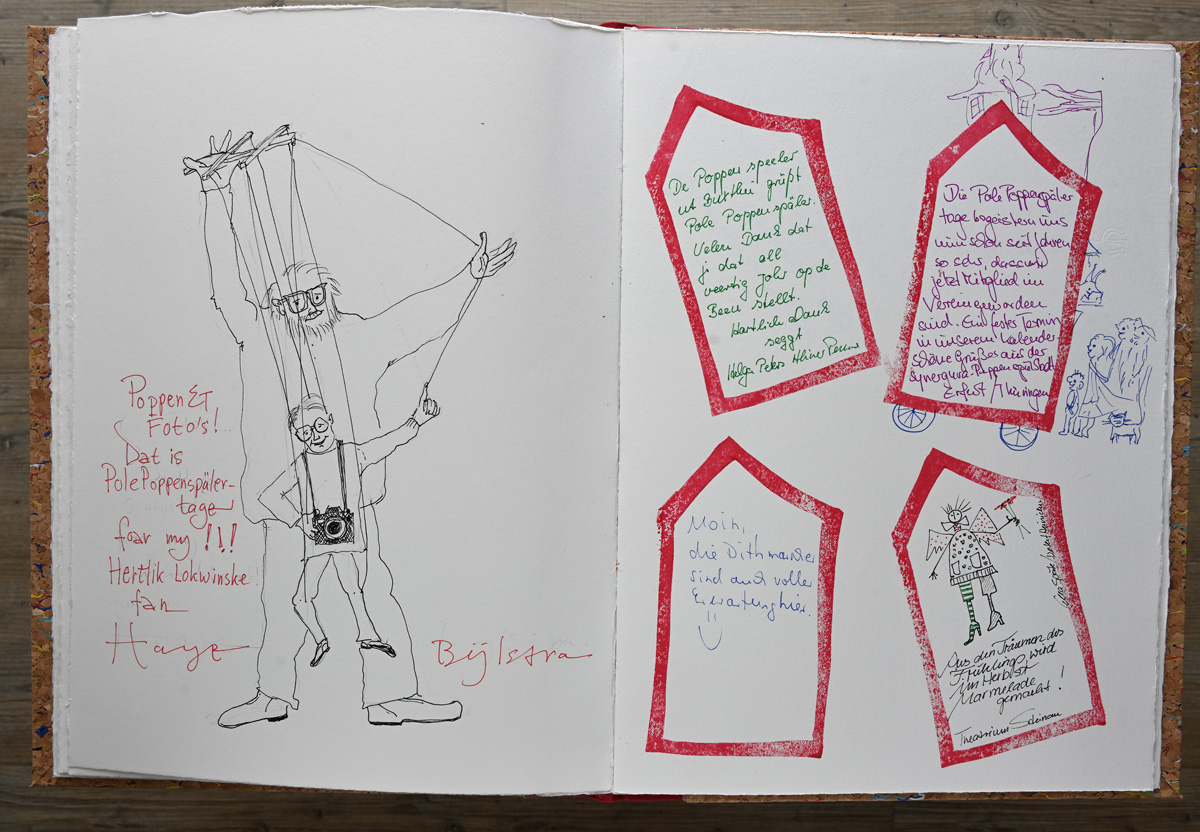 Poppen ET
Foto's!
Dat is
Pole Poppenspäler-
tage
foar my !!!
Hertlik Lokwinske
fan
Haye Bijlstra
De Poppenspeeler
ut Büttni grüßt
Pole Poppenspäler.
Velen Dank dat
ji dat all
veertig Johr op de
Been stellt.
Hartlich Dank
seggt
Helga Peters
Die Pole Poppenspäler
tage begeistern uns
nun schon seit Jahren
so sehr, dass wir
jetzt Mitglied im
Verein geworden
sind. Ein fester Termin
in unserem Kalender-
schöne Grüße aus der
Synergura-Puppenspielstadt
Erfurt/Thüringen
Moin,
die Dithmarscher
sind auch voller
Erwartung hier.
Aus den Träumen des
Frühlings wird
im Herbst
Marmelade
gemacht!